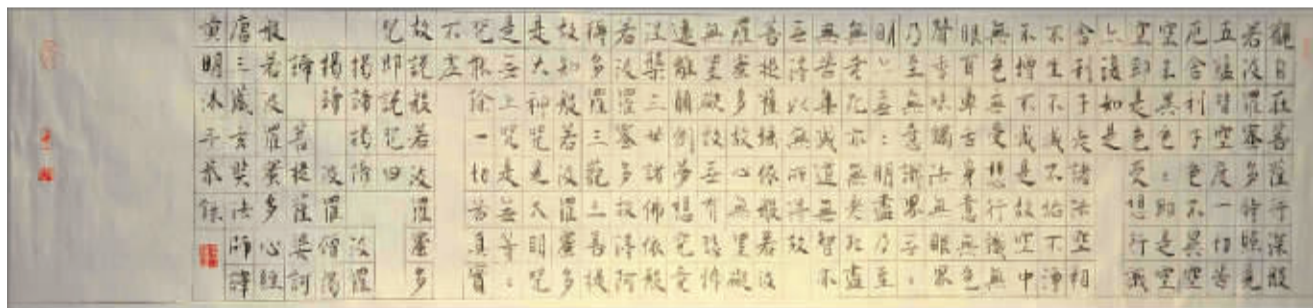 觀自在菩薩行深般
若波羅蜜多時照見
五蘊皆空度一切苦
厄舍利子色不異空
空不異色色即是空
空即是色受想行識
亦復如是
舍利子是諸法空相
不生不滅不垢不淨
不增不減是故空中
無色無受想行識無
眼耳鼻舌身意無色
聲香味觸法無眼界
乃至無意識界無無
明亦無無明盡乃至
無老死亦無老死盡
無苦集滅道無智亦
無得以無所得故
菩提薩埵依般若波
羅蜜多故心無罣礙
無罣礙故無有恐怖
遠離顛倒夢想究竟
涅槃三世諸佛依般
若波羅蜜多故得阿
耨多羅三藐三菩提
故知般若波羅蜜多
是大神咒是大明咒
是無上咒是無等等
咒能除一切苦真實
不虛
故說般若波羅蜜多
咒即說咒曰
揭諦揭諦 波羅
揭諦 波羅僧揭
諦 菩提薩婆訶
般若波羅蜜多心經
唐三藏玄奘法師譯
黃明